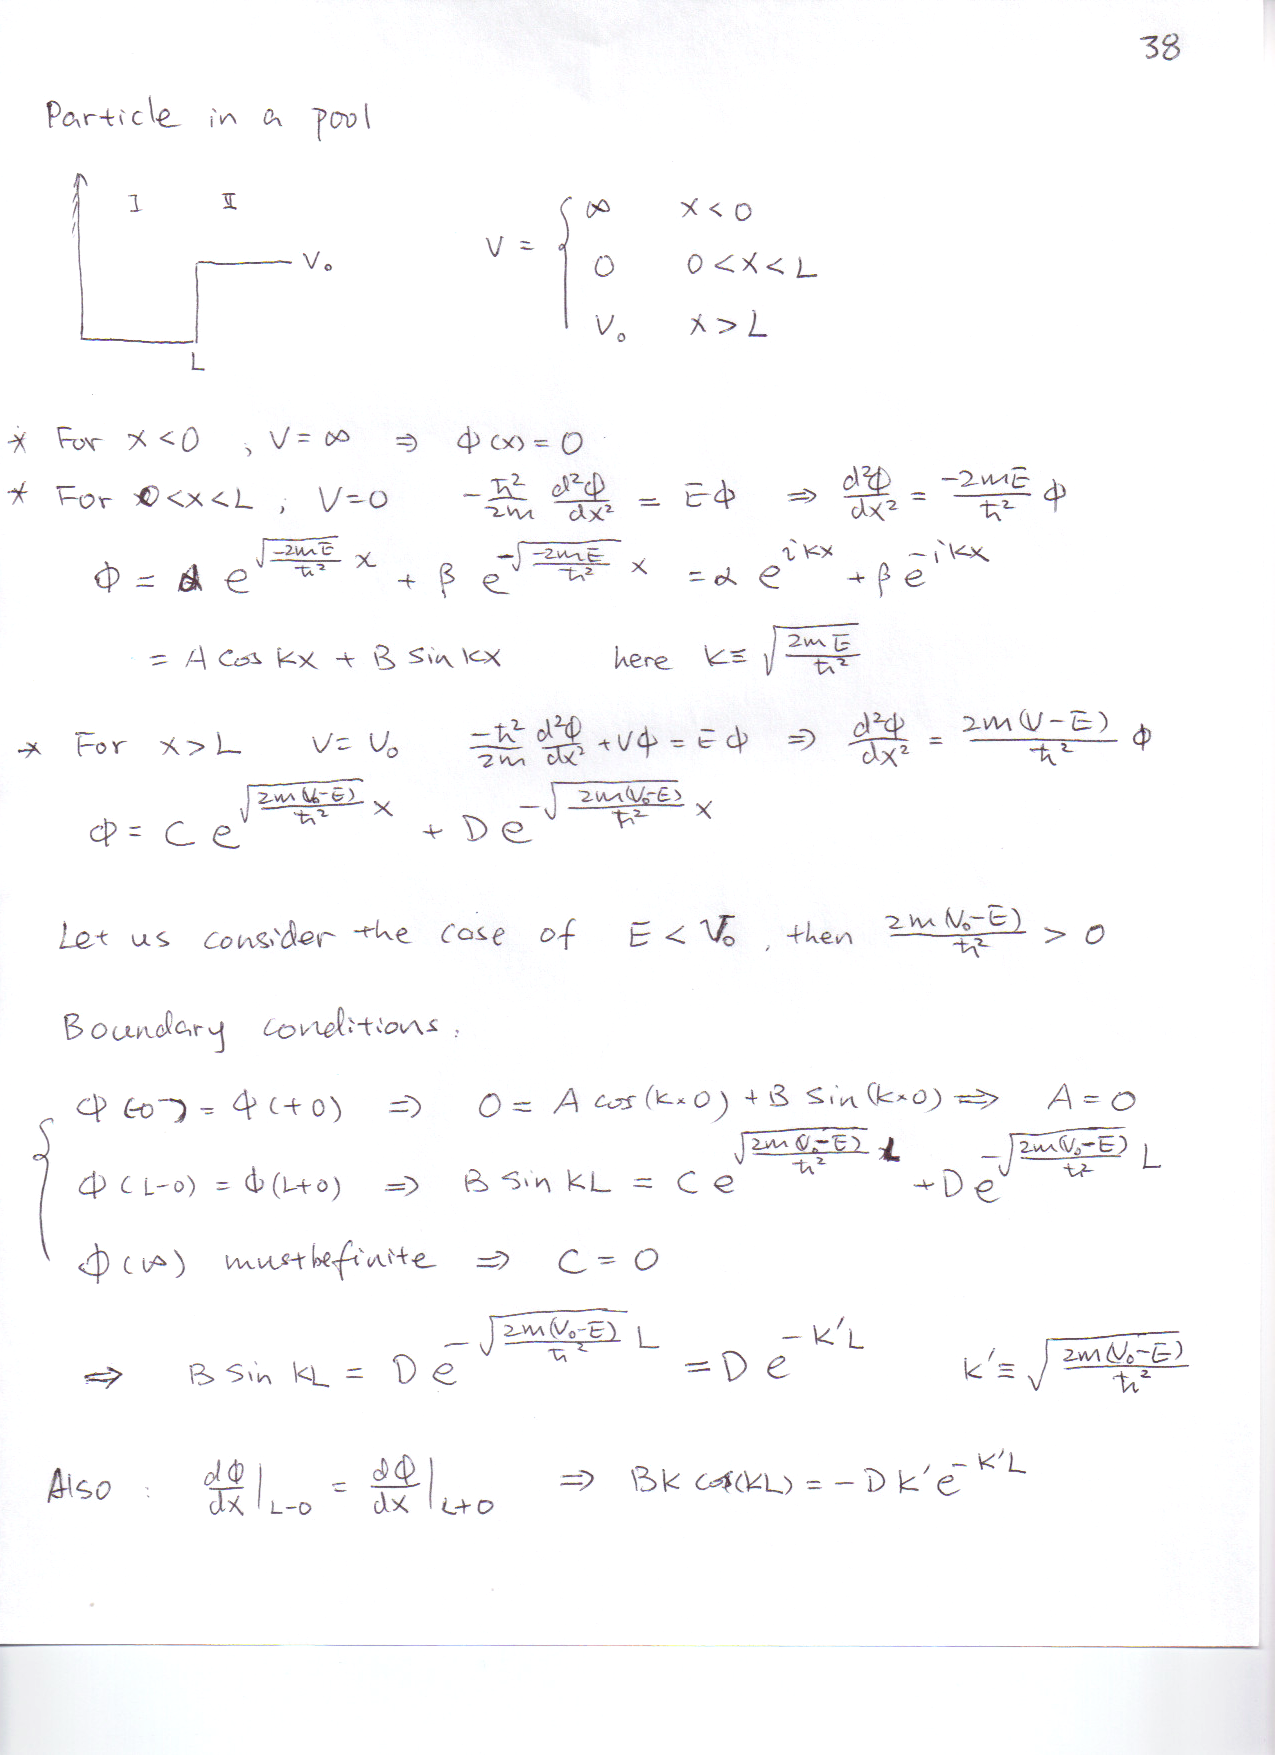 38
Particle in a pool
I II
V = { ∞ x < 0
V₀ 0 0 < x < L
V₀ x > L
L
* For x < 0 , V = ∞ ⇒ φ(x) = 0
* For 0 < x < L , V = 0 -ħ²/2m d²φ/dx² = Eφ ⇒ d²φ/dx² = -2mE/ħ² φ
φ = α e^(√(-2mE/ħ²) x) + β e^(-√(-2mE/ħ²) x) = α e^(ikx) + β e^(-ikx)
= A cos kx + B sin kx here k ≡ √(2mE/ħ²)
* For x > L V = V₀ -ħ²/2m d²φ/dx² + Vφ = Eφ ⇒ d²φ/dx² = 2m(V-E)/ħ² φ
φ = C e^(√(2m(V₀-E)/ħ²) x) + D e^(-√(2m(V₀-E)/ħ²) x)
Let us consider the case of E < V₀ , then 2m(V₀-E)/ħ² > 0
Boundary conditions :
φ(-0) = φ(+0) ⇒ 0 = A cos(k×0) + B sin(k×0) ⇒ A = 0
φ(L-0) = φ(L+0) ⇒ B sin kL = C e^(√(2m(V₀-E)/ħ²) L) + D e^(-√(2m(V₀-E)/ħ²) L)
φ(∞) must be finite ⇒ C = 0
⇒ B sin kL = D e^(-√(2m(V₀-E)/ħ²) L) = D e^(-k'L) k' ≡ √(2m(V₀-E)/ħ²)
Also : dφ/dx|L-0 = dφ/dx|L+0 ⇒ Bk cos(kL) = -D k' e^(-k'L)